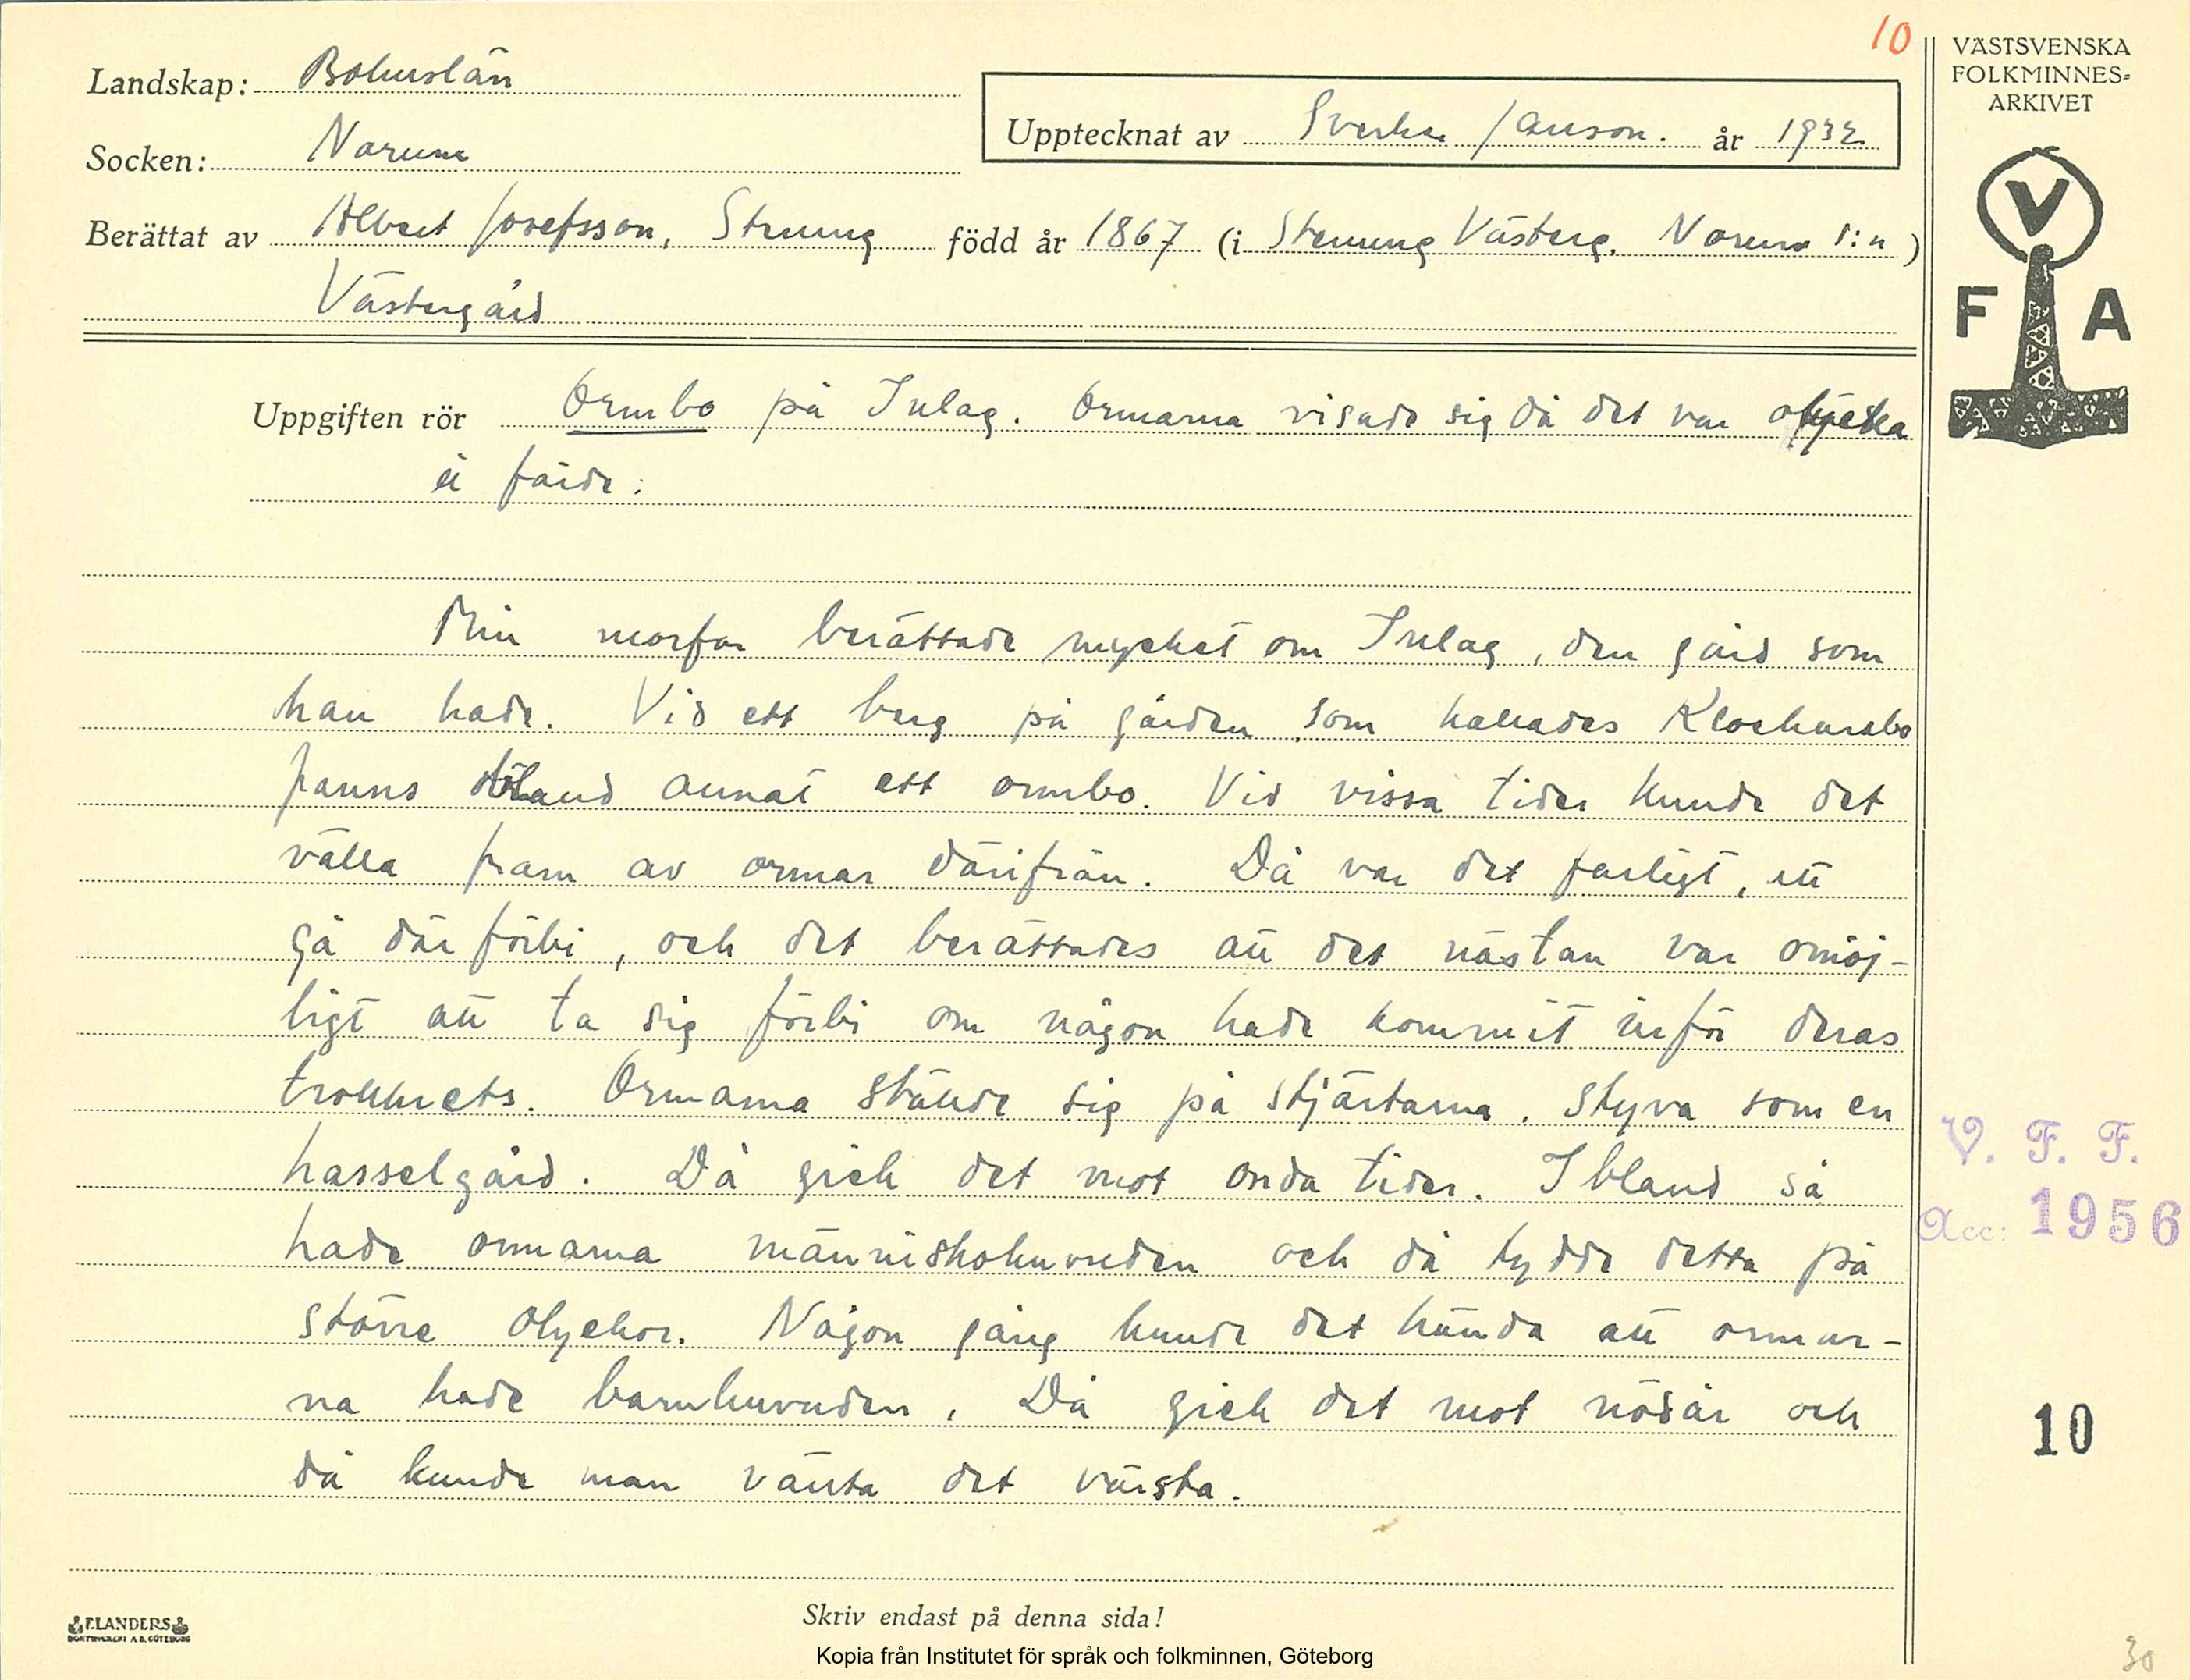 10
VÄSTSVENSKA
FOLKMINNES=
ARKIVET
Landskap: Bohuslän
Upptecknat av Sverker Janson. år 1932
Socken: Norum
Berättat av Albert Josefsson, Stenung född år 1867 (i Stenung Västerg. Norum s:n)
Västergård
V
F A
Uppgiften rör Ormbo på Inlag. Ormarna visade sig då det var olycka
å färde.
Min morfar berättade mycket om Inlag, den gård som
han hade. Vid ett berg på gården som kallades Klockarebo
fanns bland annat ett ormbo. Vid vissa tider kunde det
välla fram av ormar därifrån. Då var det farligt, att
gå där förbi, och det berättades att det nästan var omöj-
ligt att ta sig förbi om någon hade kommit inför deras
trollkrets. Ormarna ställde sig på stjärtarna, styva som en
hasselgård. Då gick det mot onda tider. Ibland så
hade ormarna människohuvuden och då tydde detta på
större olyckor. Någon gång kunde det hända att ormar-
na hade barnhuvuden, Då gick det mot nödår och
då kunde man vänta det värsta.
V. F. F.
Acc: 1956
10
ELANDERS
BOKTRYCKERI A.B. GÖTEBORG
Skriv endast på denna sida!
Kopia från Institutet för språk och folkminnen, Göteborg
30